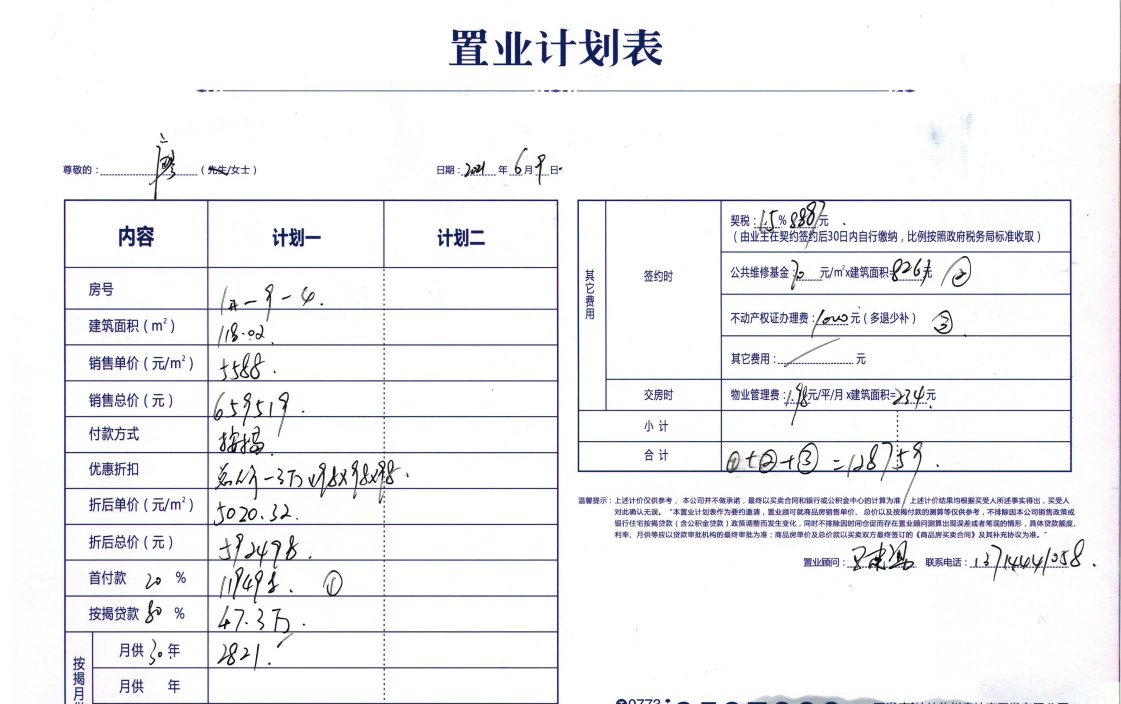 置业计划表
尊敬的：廖（先生/女士）
日期：2021年6月9日
内容 计划一 计划二
房号 1#-9-4.
建筑面积（m²） 118.02
销售单价（元/m²） 5588.
销售总价（元） 659519.
付款方式 按揭
优惠折扣 总价-3万×98×98×98.
折后单价（元/m²） 5020.32.
折后总价（元） 592498.
首付款 20 % 119498. ①
按揭贷款 80 % 47.3万.
按揭月供
月供30年 2821.
月供 年
其它费用
签约时
契税：1.5%8887元
（由业主在契约签约后30日内自行缴纳，比例按照政府税务局标准收取）
公共维修基金：70元/m²x建筑面积=8261元 ②
不动产权证办理费：1000元（多退少补） ③
其它费用：元
交房时
物业管理费：1.98元/平/月 x建筑面积=234元
小 计
合 计 ①+②+③=128759.
温馨提示：上述计价仅供参考，本公司并不做承诺，最终以买卖合同和银行或公积金中心的计算为准，上述计价结果均根据买受人所述事实得出，买受人
对此确认无误。“本置业计划表作为要约邀请，置业顾问可就商品房销售单价、总价以及按揭付款的测算等仅供参考，不排除因本公司销售政策或
银行住宅按揭贷款（含公积金贷款）政策调整而发生变化，同时不排除因时间仓促而存在置业顾问测算出现误差或者笔误的情形，具体贷款额度、
利率、月供等应以贷款审批机构的最终审批为准；商品房单价及总价款以买卖双方最终签订的《商品房买卖合同》及其补充协议为准。”
置业顾问： 联系电话：13714441058.
0773